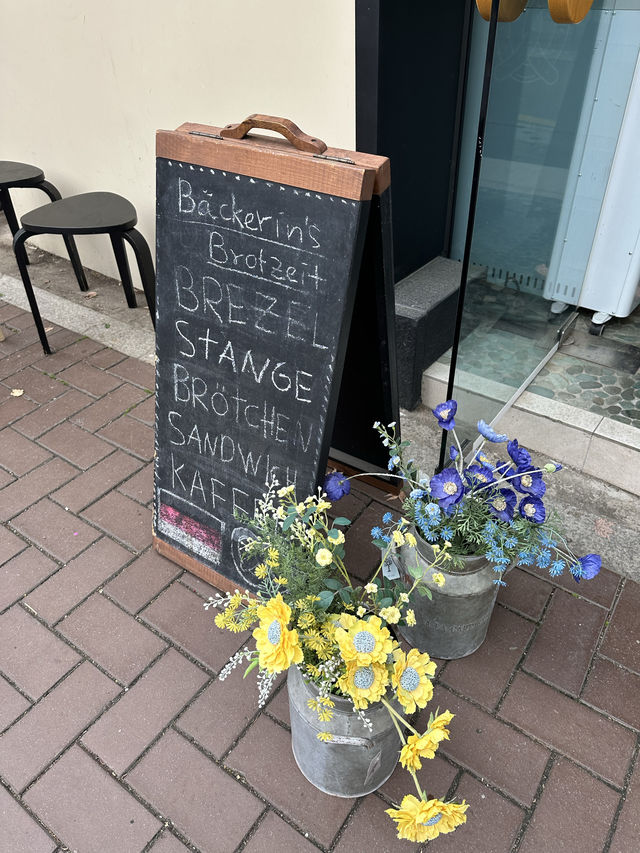 Bäckerin's
Brotzeit
BREZEL
STANGE
BRÖTCHEN
SANDWICH
KAFFE